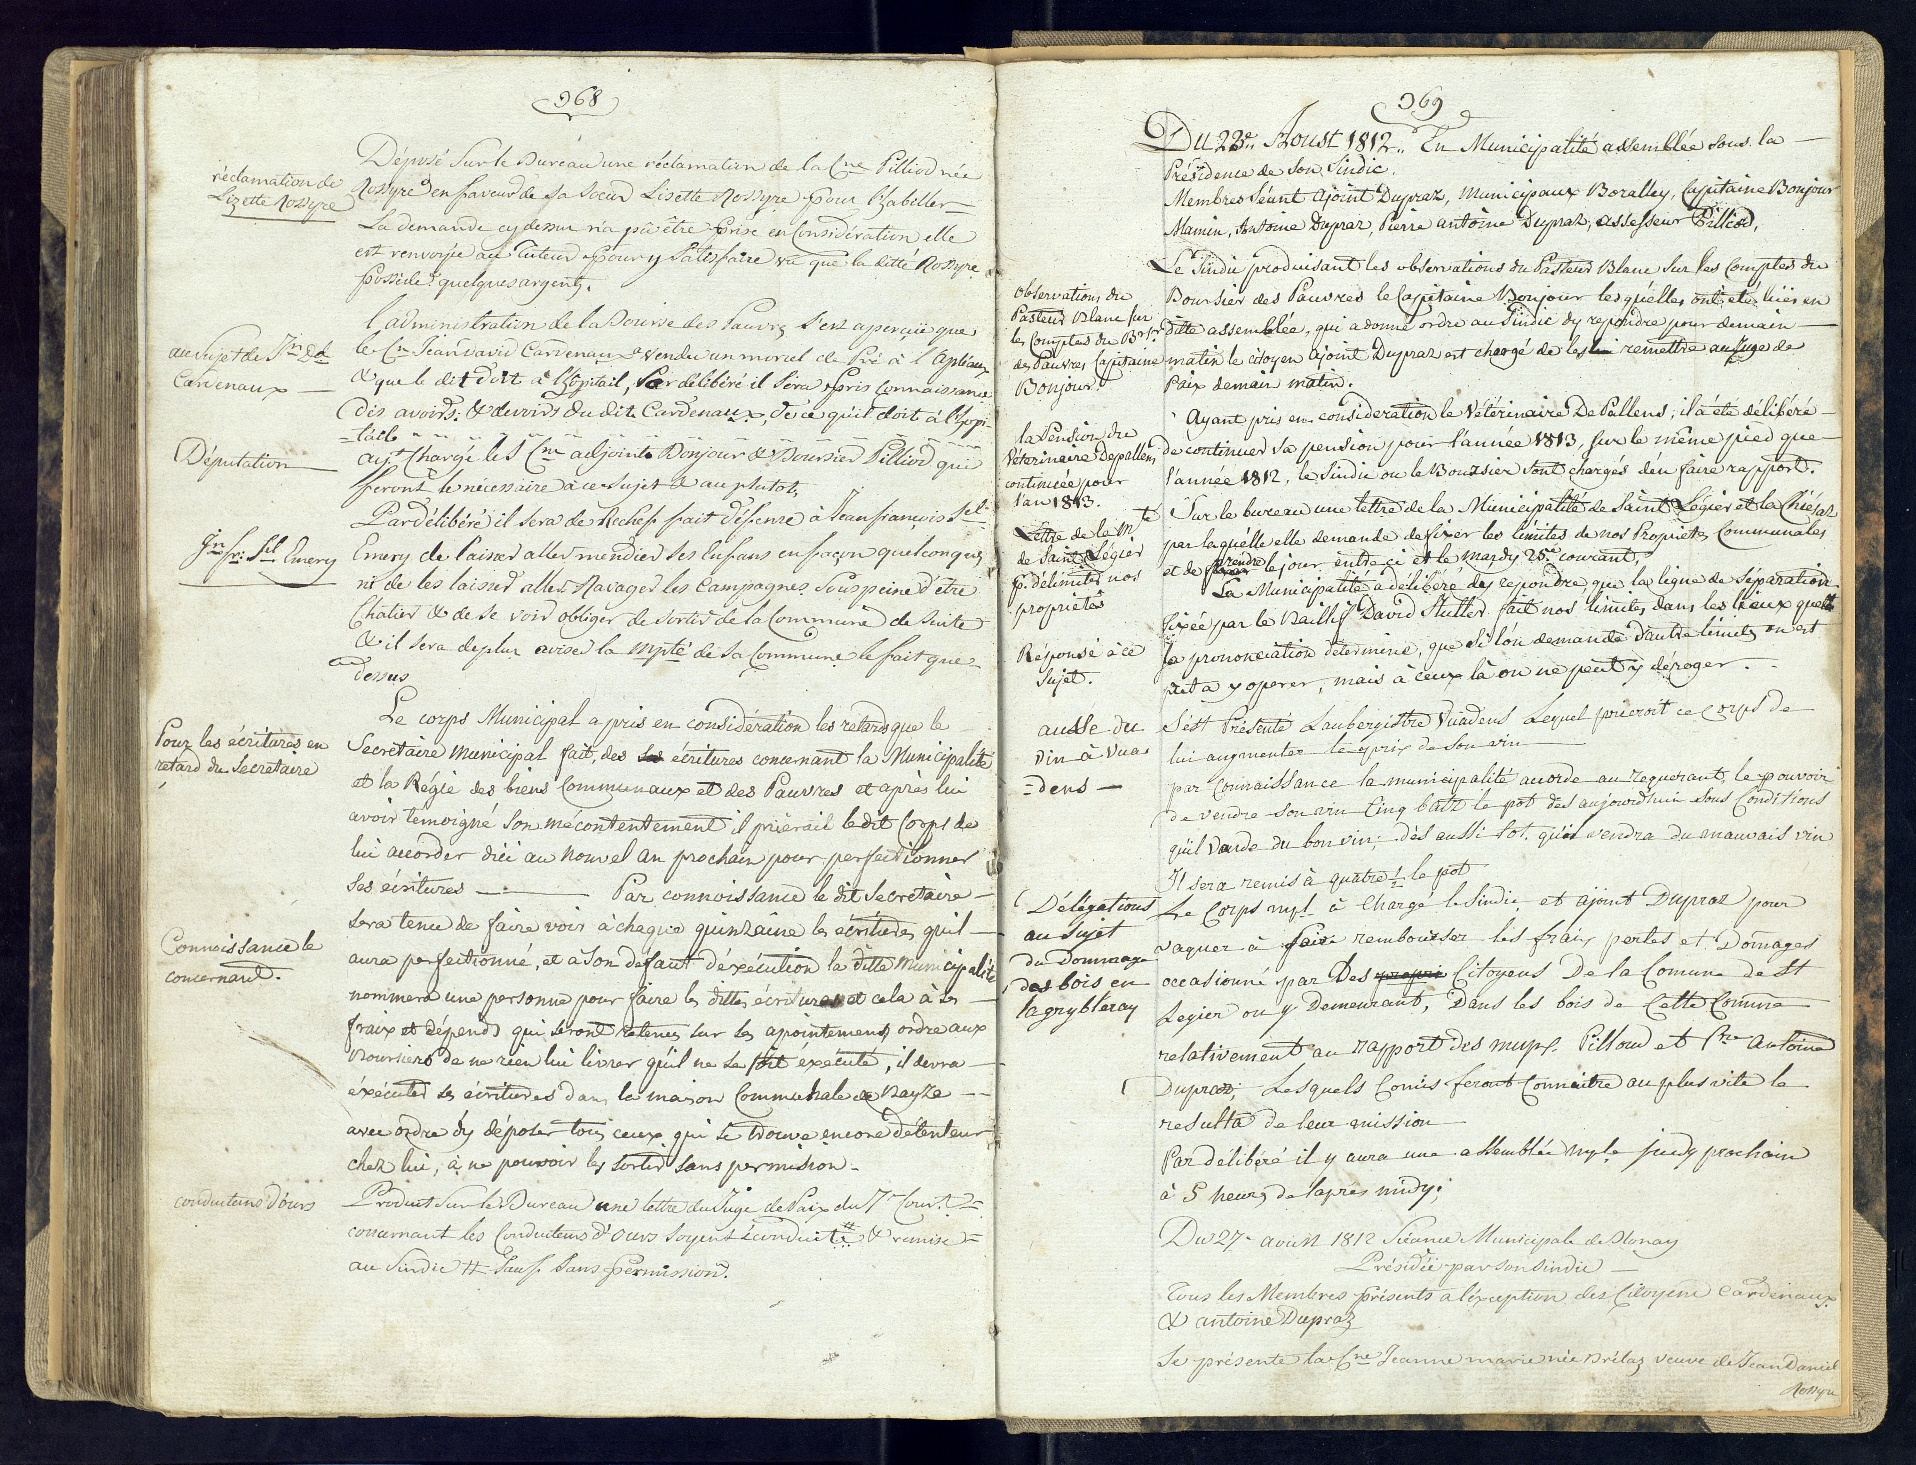 368
réclamation de
Lisette Rossyre
Déposé Sur le Bureau une réclamation de la Cne Pilliod née
Rossyre en faveur de sa soeur Lisette Rossyre pour l'habiller
La demande cy dessus n'a pû être prise en Considération elle
est renvoyée au Tuteur pour y Satisfaire vu que la ditte Rossyre
possède quelques argents.
au Sujet de Jn Dd
Cardenaux
l'administration de la Bourse des Pauvres s'est apperçüe que
le Cn Jean David Cardenaux a vendu un morcel de Pré à
& que le dit doit à l'hopitail, Par délibéré il sera pris Connaissance
des avoirs & devoirs du dit Cardenaux, de ce qu'il doit à l'hopi-
-tail
Députation
ayt Chargé les Cne adjoint Bonjour & Boursier Pilliod qui
feront le nécessaire à ce sujet & au plutot,
Jn fs Sel Emery
Par délibéré il sera de Rechef fait défense à Jean françois Sel
Emery de laisser aller mendier ses Enfans en façon quelconque,
ni de les laisser aller Ravager les Campagnes, sous peine d'être
Chatier & de se voir obliger de sortir de la Commune de Suite
& il sera de plus avisé la Mpté de Sa Commune le fait que
dessus
Pour les écritures en
retard du Secretaire
Le corps Municipal a pris en considération les retards que le
Secretaire Municipal fait, des écritures concernant la Municipalité
et la Régie des biens Communaux et des Pauvres et après lui
avoir témoigné son mécontentement il prierait le dit Corps de
lui accorder d'ici au nouvel an prochain pour perfectionner
ses écritures — Par connoissance le dit Secretaire
Connoissance le
concernant.
sera tenu de faire voir à chaque quinzaine les écritures qu'il
aura perfectionné, et à son defaut d'éxécution la ditte Municipalité
nommera une personne pour faire les dittes écritures et cela à ses
fraix et dépends qui seront retenus sur ses apointements, ordre aux
Boursiers de ne rien lui livrer qu'il ne se soit éxécuté, il devra
éxécuter ses écritures dans la maison Communale de Bayse
avec ordre d'y déposer tous ceux qui se trouve encore détenteur
chez lui, à ne pouvoir les sortir sans permission.
conducteurs d'ours
Produit Sur le Bureau une lettre du Juge de Paix du 7e Cour.t
concernant les Conducteurs d'ours soyent éconduits # & remise
au Sindic # Sauf Sans permission.
369
Du 22e Aoust 1812. En Municipalité assemblée sous la
Présidence de son Sindic.
Membres Séent Ajoint Dupraz, Municipaux Boralley, Capitaine Bonjour
Mamin, Antoine Dupraz, Pierre antoine Dupraz, assesseur Pilliod,
Observations du
Pasteur Blanc sur
les Comptes du Brsr
des Pauvres Capitaine
Bonjour
Le Sindic produisant les observations du Pasteur Blanc sur les Comptes du
Boursier des Pauvres le Capitaine Bonjour lesquelles ont été luës en
ditte assemblée, qui a donné ordre au Sindic d'y repondre pour demain
matin le citoyen ajoint Dupraz est chargé de les remettre au Juge de
Paix demain matin.
la Pension du
Véterinaire Depallens
continuée pour
l'an 1813.
Ayant pris en considération le Vétérinaire De Pallens; il a été délibéré
de continuer sa pension pour l'année 1813, sur le même pied que
l'année 1812, le Sindic ou le Boursier sont chargés d'en faire rapport.
Lettre de la Mté
de Saint Légier
p. délimiter nos
propriétés
Sur le bureau une lettre de la Municipalité de Saint Légier et la Chiésaz
par laquelle elle demande de fixer les limites de nos Propietés Communales
et de prendre le jour entre ci et le mardy 25e courant,
La Municipalité a délibéré d'y repondre que la ligne de Séparation
Réponse à ce
sujet.
fixée par le Baillif David Stutter fait nos limites dans les lieux que
la prononciation détermine, que si l'on demande d'autre limites on est
pret a y operer, mais à ceux là on ne peut y déroger.
ausse du
vin à Vua
=dens —
S'est Présenté Laubergistre Vuadens Lequel prieroit ce Corps de
lui augmenter le prix de son vin
par Connaissance la municipalité acorde au requerant le pouvoir
de vendre son vin Cinq batz le pot dès aujourdhui sous Conditions
qu'il vande du bon vin; dès aussi tot qu'il vendra du mauvais vin
Il sera remis à quatre 1/2 le pot
Délégations
au sujet
du Dommage
des bois en
lagrybleray
Le Corps mpl à Chargé le Sindic et ajoint Dupraz pour
vaquer à faire rembourser les fraix pertes et Domages
occasionné par Des Citoyens De la Comune de St
Legier ou y Demeurant, Dans les bois de Cette Comune
relativement au rapport des mups. Pilloud et Pre Antoine
Dupraz, Lesquels Comis feront Connaitre au plus vite le
resulta de leur mission
Par delibéré il y aura une assemblée mple jeudy prochain
à 5 heures de laprès midy.
Du 27e aoust 1812 Séance Municipale de Blonay
Présidée par son Sindic
Tous les Membres présents à l'éxception des Citoyens Cardenaux
& antoine Dupraz
Se présente la Cne Jeanne marie née Drélaz veuve de Jean Daniel
Rossyre